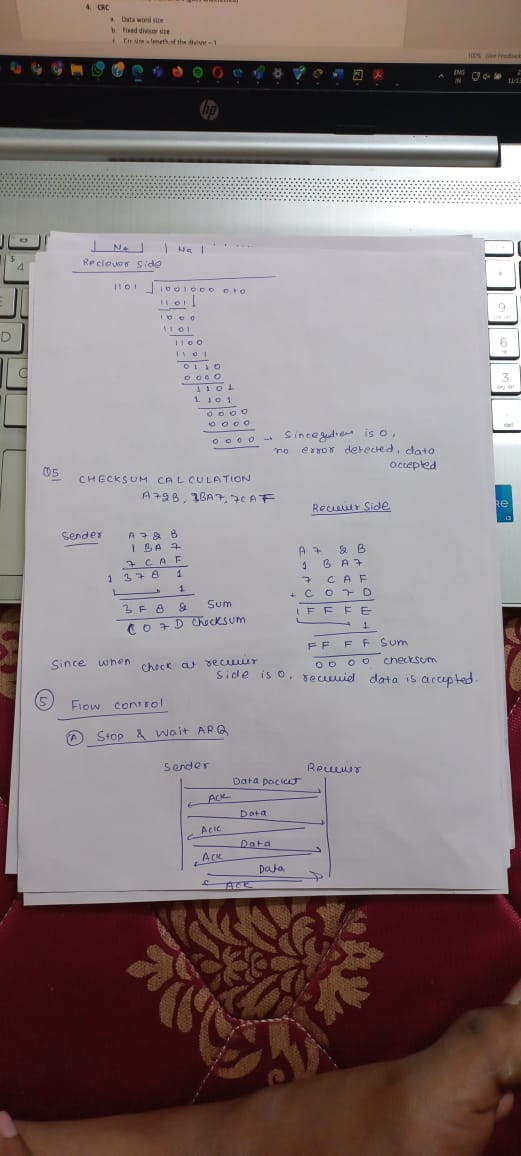 4. CRC
a. Data word size
b. Fixed divisor size
c. Crc size = length of the divisor – 1
100%
ENG
IN
hp
Reciever Side
1101 1001000 010
1101
1000
1101
1100
1101
0110
0000
1101
1101
0000
0000
0000 → Since is 0,
no error detected, data
accepted
Q5 CHECKSUM CALCULATION
A72B, 1BA7, 7CAF
Reciever Side
Sender
A 7 2 B
1 B A 7
7 C A F
1 3 7 8 1
1
3 F 8 2 Sum
C 0 7 D Checksum
A 7 2 B
1 B A 7
7 C A F
+ C 0 7 D
1 F F F E
1
F F F F Sum
0 0 0 0 checksum
Since when check at reciever
side is 0, recieved data is accepted.
5 Flow control
A Stop & Wait ARQ
Sender Reciever
Data packet
Ack
Data
Ack
Data
Ack
Data
Ack
4
D
C
9
6
3
i3